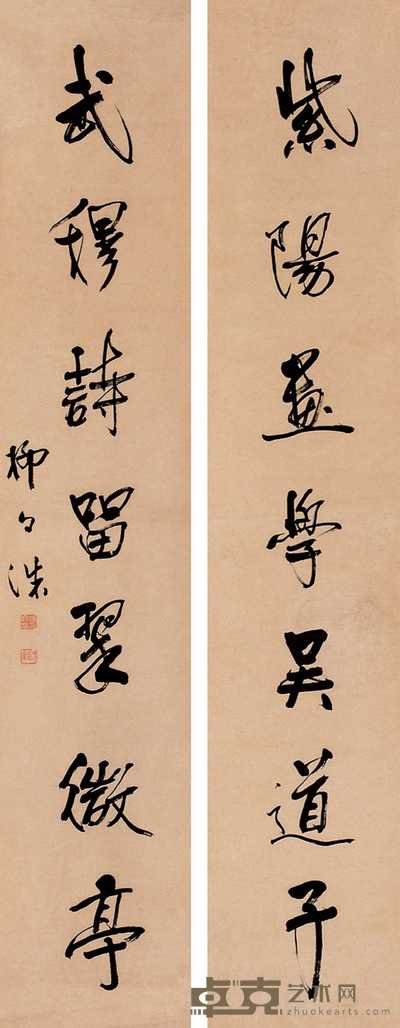 紫陽畫學吳道子
武穆詩留翠微亭
柳
卓克艺术网
zhuokearts.com